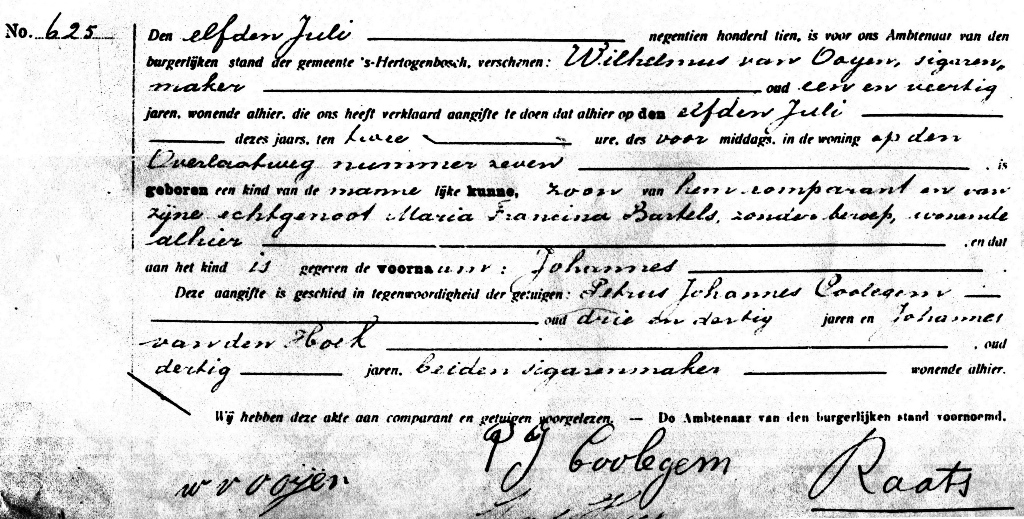 No. 625 Den elfden Juli negentien honderd tien, is voor ons Ambtenaar van den
burgerlijken stand der gemeente 's-Hertogenbosch, verschenen: Wilhelmus van Ooyen, sigaren-
maker oud een en veertig
jaren, wonende alhier, die ons heeft verklaard aangifte te doen dat alhier op den elfden Juli
dezes jaars, ten twee ure, des voor middags, in de woning op den
Overlaatweg nummer zeven is
geboren een kind van de manne lijke kunne, zoon van hem comparant en van
zijne echtgenoot Maria Francina Bartels, zonder beroep, wonende
alhier , en dat
aan het kind is gegeven de voornaam : Johannes .
Deze aangifte is geschied in tegenwoordigheid der getuigen: Petrus Johannes Coolegem
oud drie en dertig jaren en Johannes
van den Hoek , oud
dertig jaren, beiden sigarenmaker wonende alhier.
Wij hebben deze akte aan comparant en getuigen voorgelezen. — De Ambtenaar van den burgerlijken stand voornoemd.
P J Coolegem
w v ooijen Raats